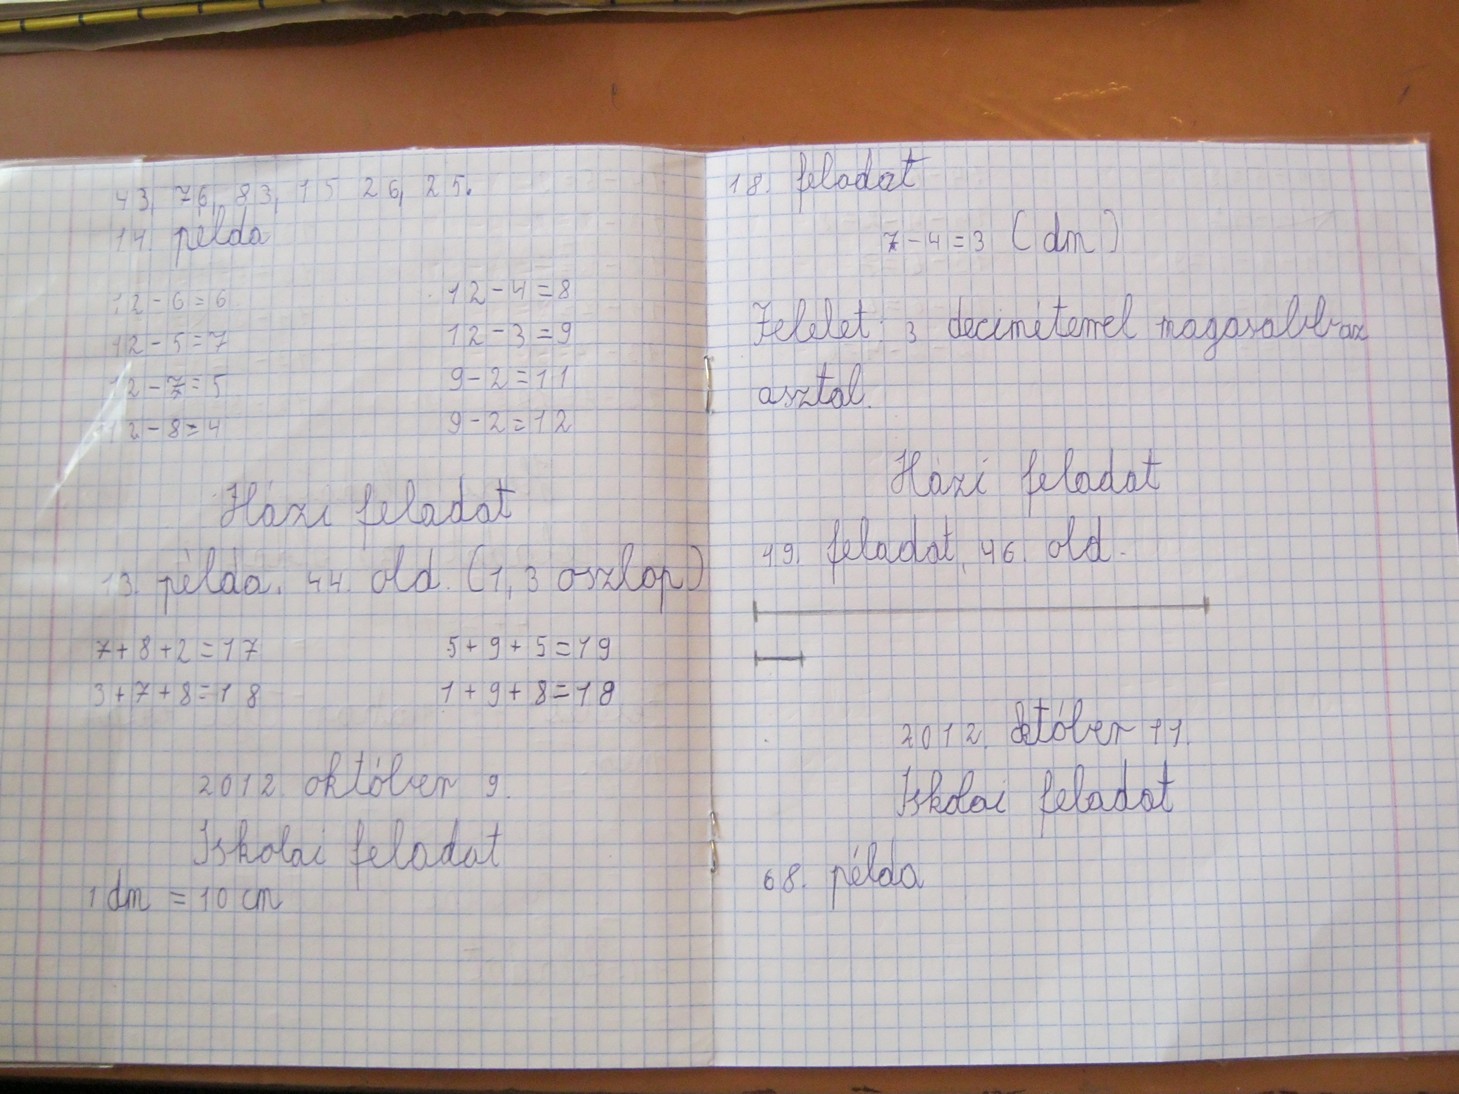 43, 76, 83, 15 26, 25.
14. példa
12-6=6
12-4=8
12-5=7
12-3=9
12-7=5
9-2=11
12-8=4
9-2=12
Házi feladat
13. példa. 44. old. (1, 3 oszlop)
7+8+2=17
5+9+5=19
3+7+8=18
1+9+8=18
2012. október 9.
Iskolai feladat
1 dm = 10 cm
18. feladat
7-4=3 (dm)
Felelet: 3 deciméterrel magasabb az
asztal.
Házi feladat
49. feladat, 46. old.
2012. október 11.
Iskolai feladat
68. példa